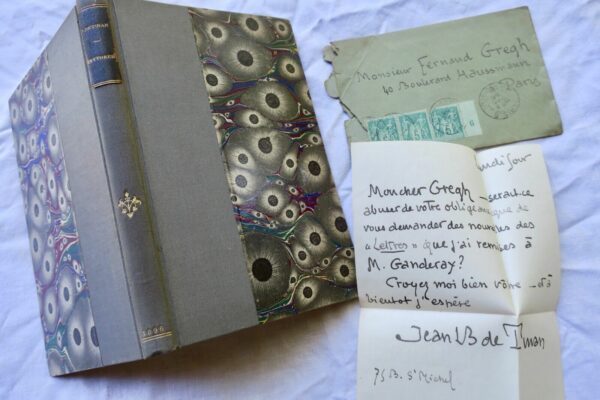 1896
Monsieur Fernand Gregh
40 Boulevard Haussmann
Paris
Mon cher Gregh _ serait-ce
abuser de votre obligeance que de
vous demander des nouvelles des
« Lettres » que j'ai remises à
M. Ganderax ?
Croyez moi bien vôtre _ et à
bientôt j'espère
Jean B de Tinan
75 B. St Michel